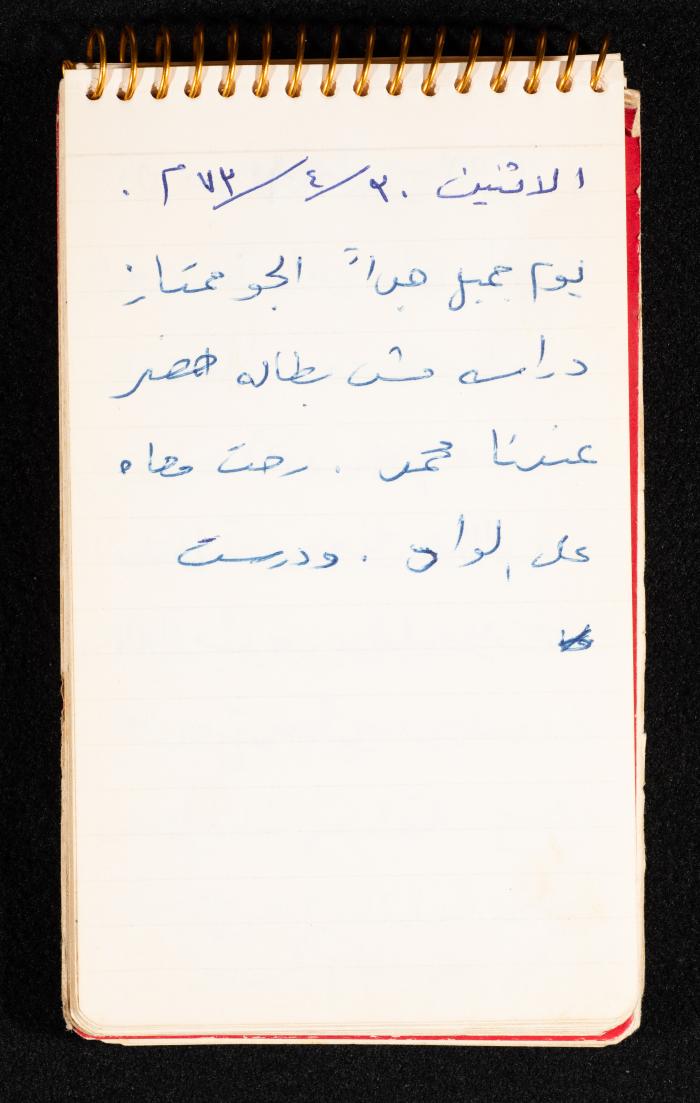 الاثنين ٣٠/٤/٧٣ م .
يوم جميل جداً الجو ممتاز
دراسه مش بطاله حضر
عندنا محمد . رحت معاه
على الواد . ودرست